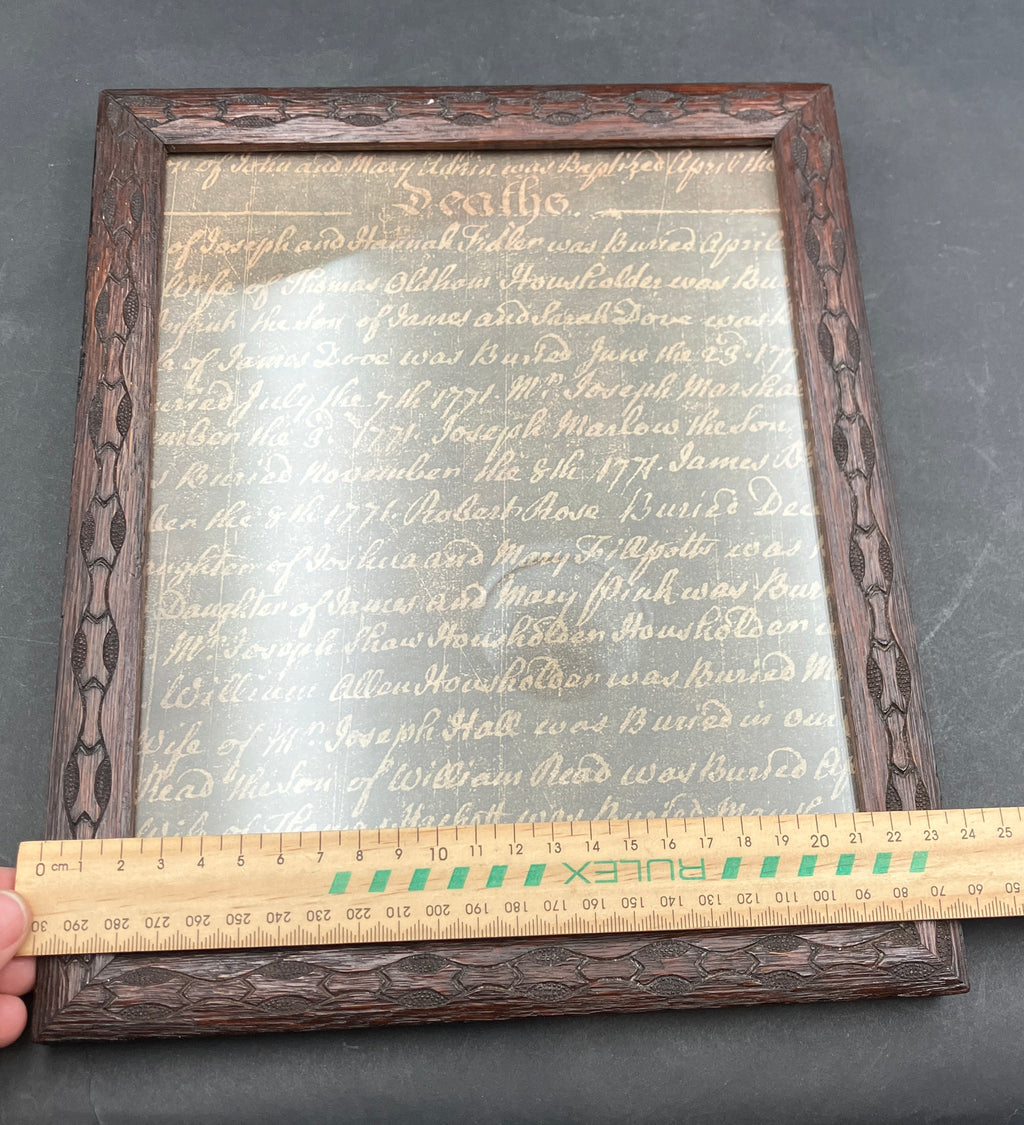 of John and Mary Adkin was Baptized April the
Deaths.
of Joseph and Hannah Fidler was Buried April
Wife of Thomas Oldham Housholder was Bu
the Son of James and Sarah Dove was
of James Dove was Buried June the 23. 177
uried July the 7th 1771. Mr. Joseph Marshal
mber the 3d. 1771. Joseph Marlow the Son
s Buried November the 8th 1771. James B
ber the 8th 1771. Robert Rose Buried Dec
aughter of Joshua and Mary Fillpotts was
Daughter of James and Mary Pink was Bur
Mr. Joseph Shaw Housholder Housholder w
William Allen Housholder was Buried M
Wife of Mr. Joseph Hall was Buried in our
Read the Son of William Read was Buried Ap
Wife of Hackett was Buried March
0 cm 1 2 3 4 5 6 7 8 9 10 11 12 13 14 15 16 17 18 19 20 21 22 23 24 25
RULEX
30 290 280 270 260 250 240 230 220 210 200 190 180 170 160 150 140 130 120 110 100 90 80 70 60 50